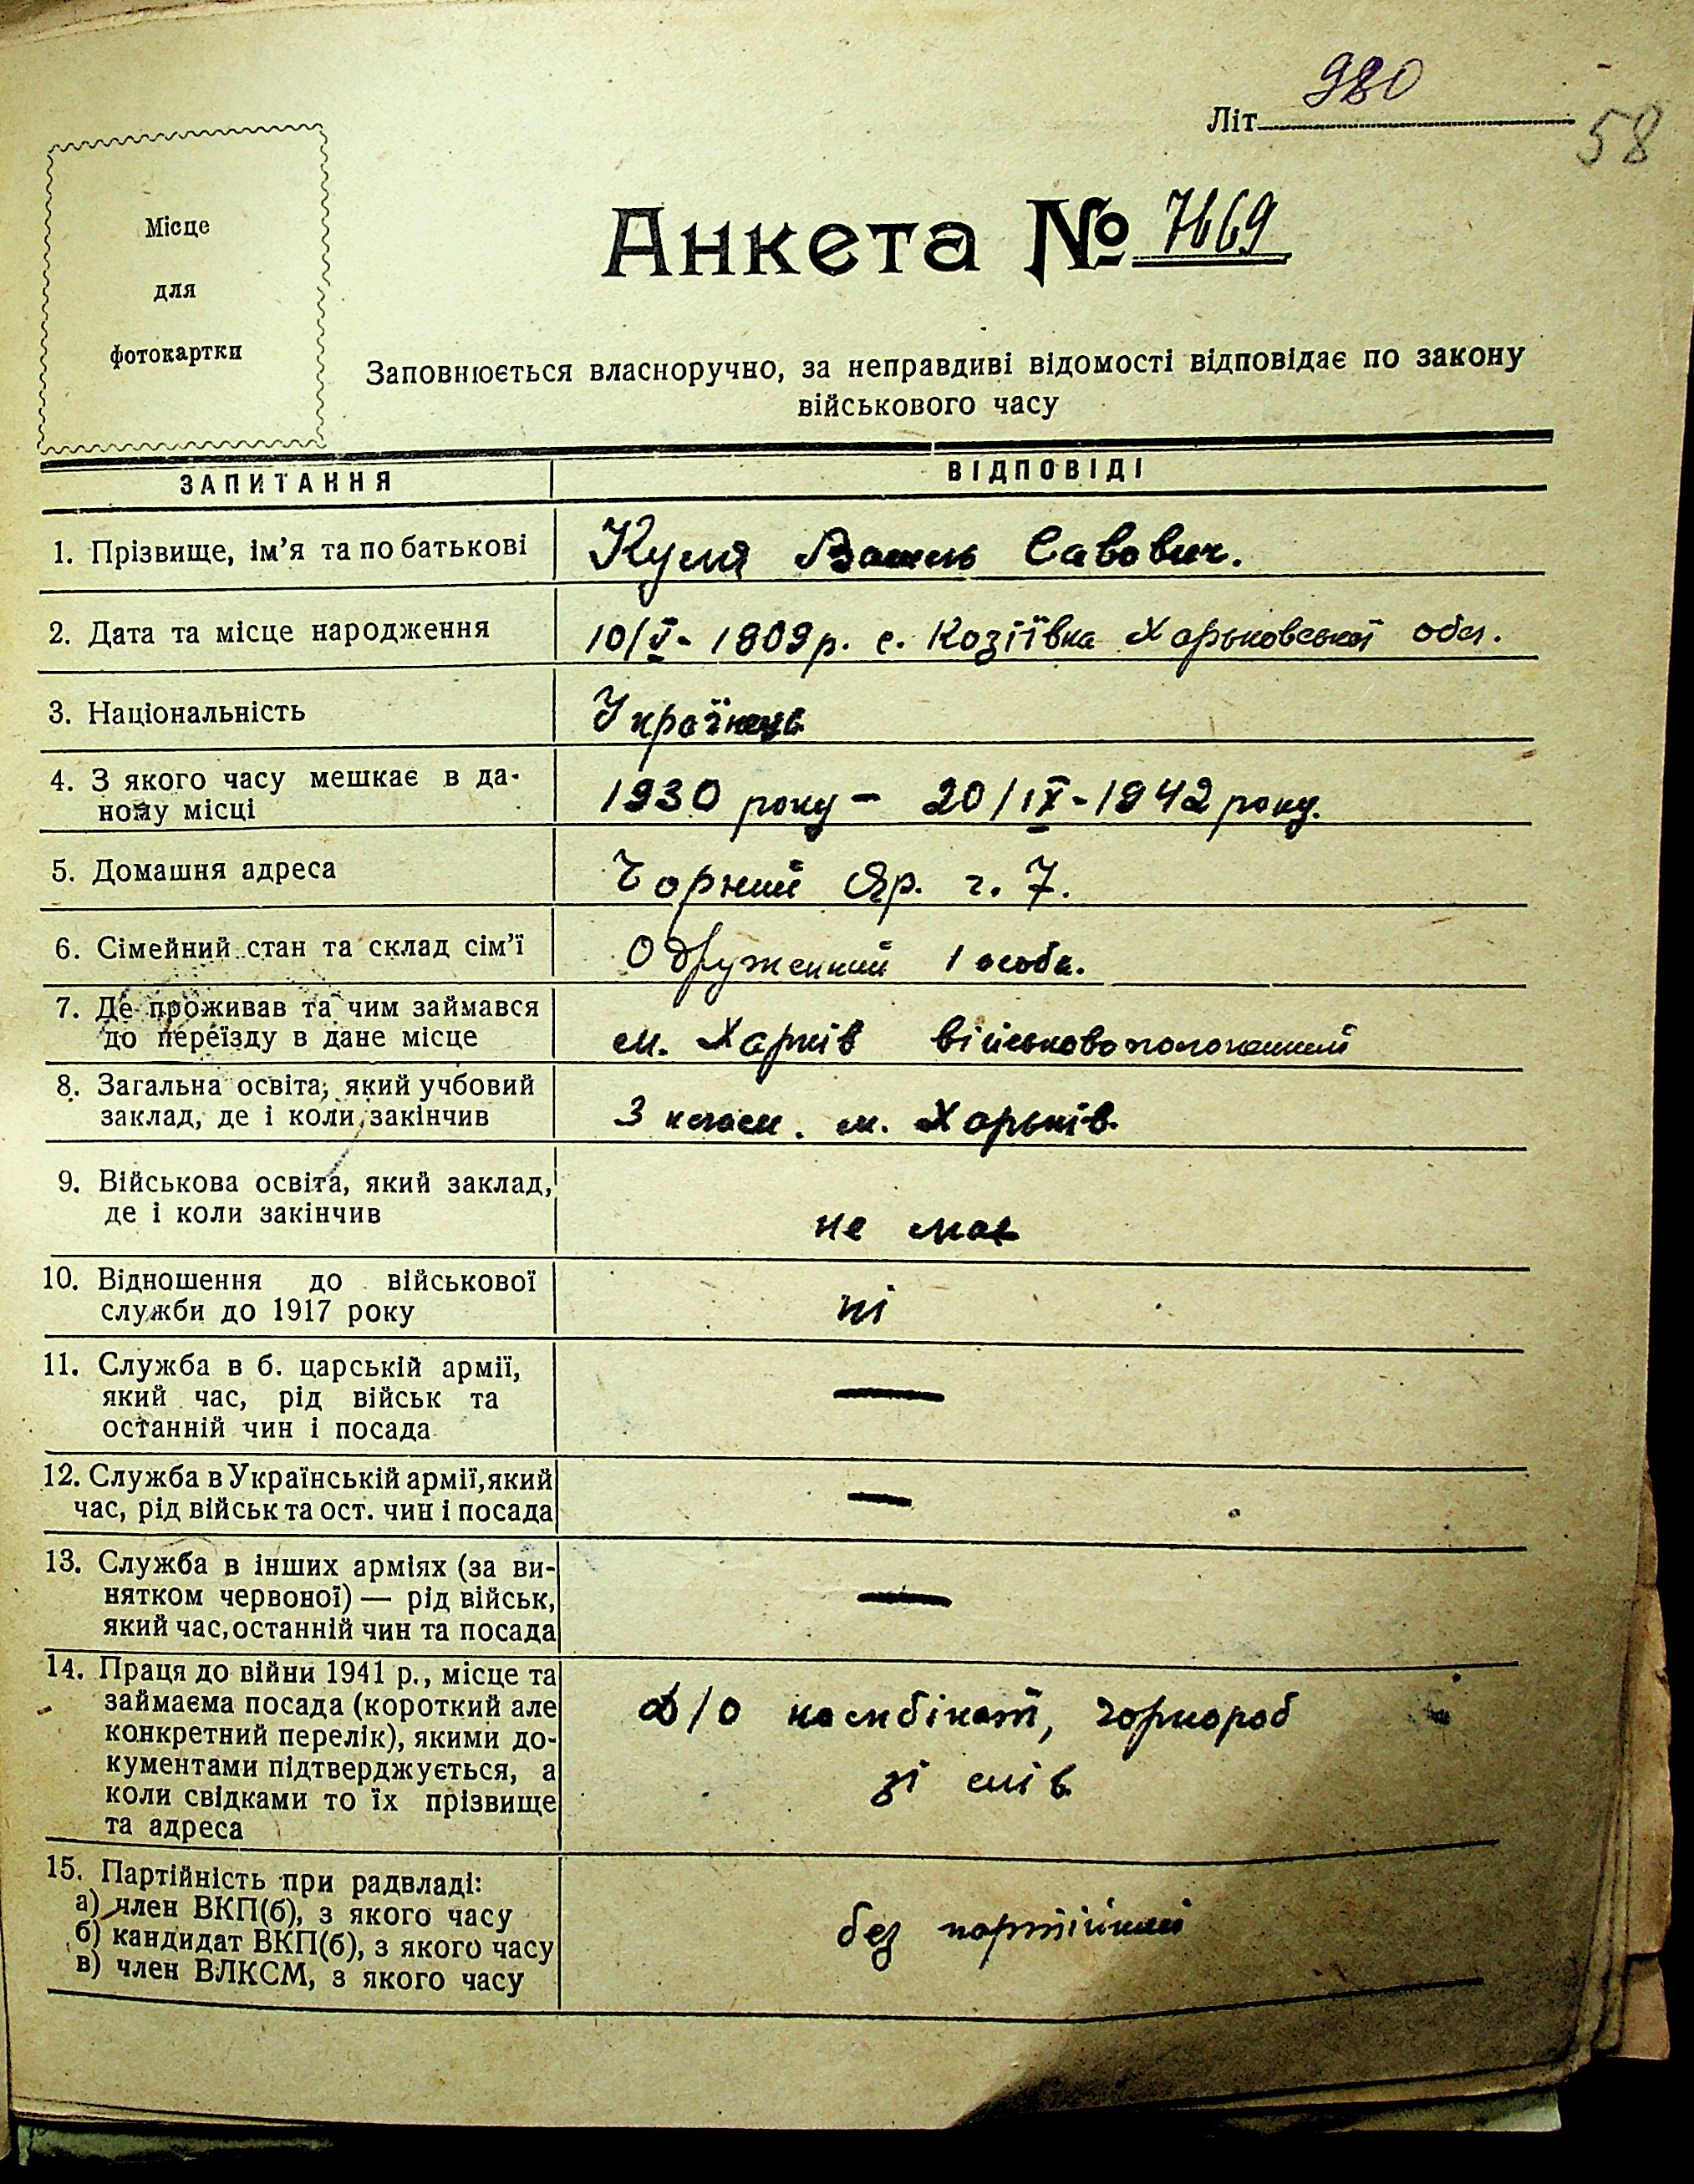 980
Літ
58
Місце
для
фотокартки
Анкета № 7669
Заповнюється власноручно, за неправдиві відомості відповідає по закону
військового часу
ЗАПИТАННЯ
ВІДПОВІДІ
1. Прізвище, ім'я та по батькові
Василь Савович.
2. Дата та місце народження
10/V - 1909 р. с. Козіївка Харьковської обл.
3. Національність
Українець
4. З якого часу мешкає в да-
ному місці
1930 року - 20/IX - 1942 року.
5. Домашня адреса
Чорний Яр. ч. 7.
6. Сімейний стан та склад сім'ї
Одруженний 1 особа.
7. Де проживав та чим займався
до переїзду в дане місце
м. Харків військовополоненний
8. Загальна освіта, який учбовий
заклад, де і коли закінчив
3 клас. м. Харьків.
9. Військова освіта, який заклад,
де і коли закінчив
не має
10. Відношення до військової
служби до 1917 року
ні
11. Служба в б. царській армії,
який час, рід військ та
останній чин і посада
—
12. Служба в Українській армії, який
час, рід військ та ост. чин і посада
—
13. Служба в інших арміях (за ви-
нятком червоної) — рід військ,
який час, останній чин та посада
—
14. Праця до війни 1941 р., місце та
займаєма посада (короткий але
конкретний перелік), якими до-
кументами підтверджується, а
коли свідками то їх прізвище
та адреса
Д/О комбінат, чорнороб
зі слів
15. Партійність при радвладі:
а) член ВКП(б), з якого часу
б) кандидат ВКП(б), з якого часу
в) член ВЛКСМ, з якого часу
без партійний